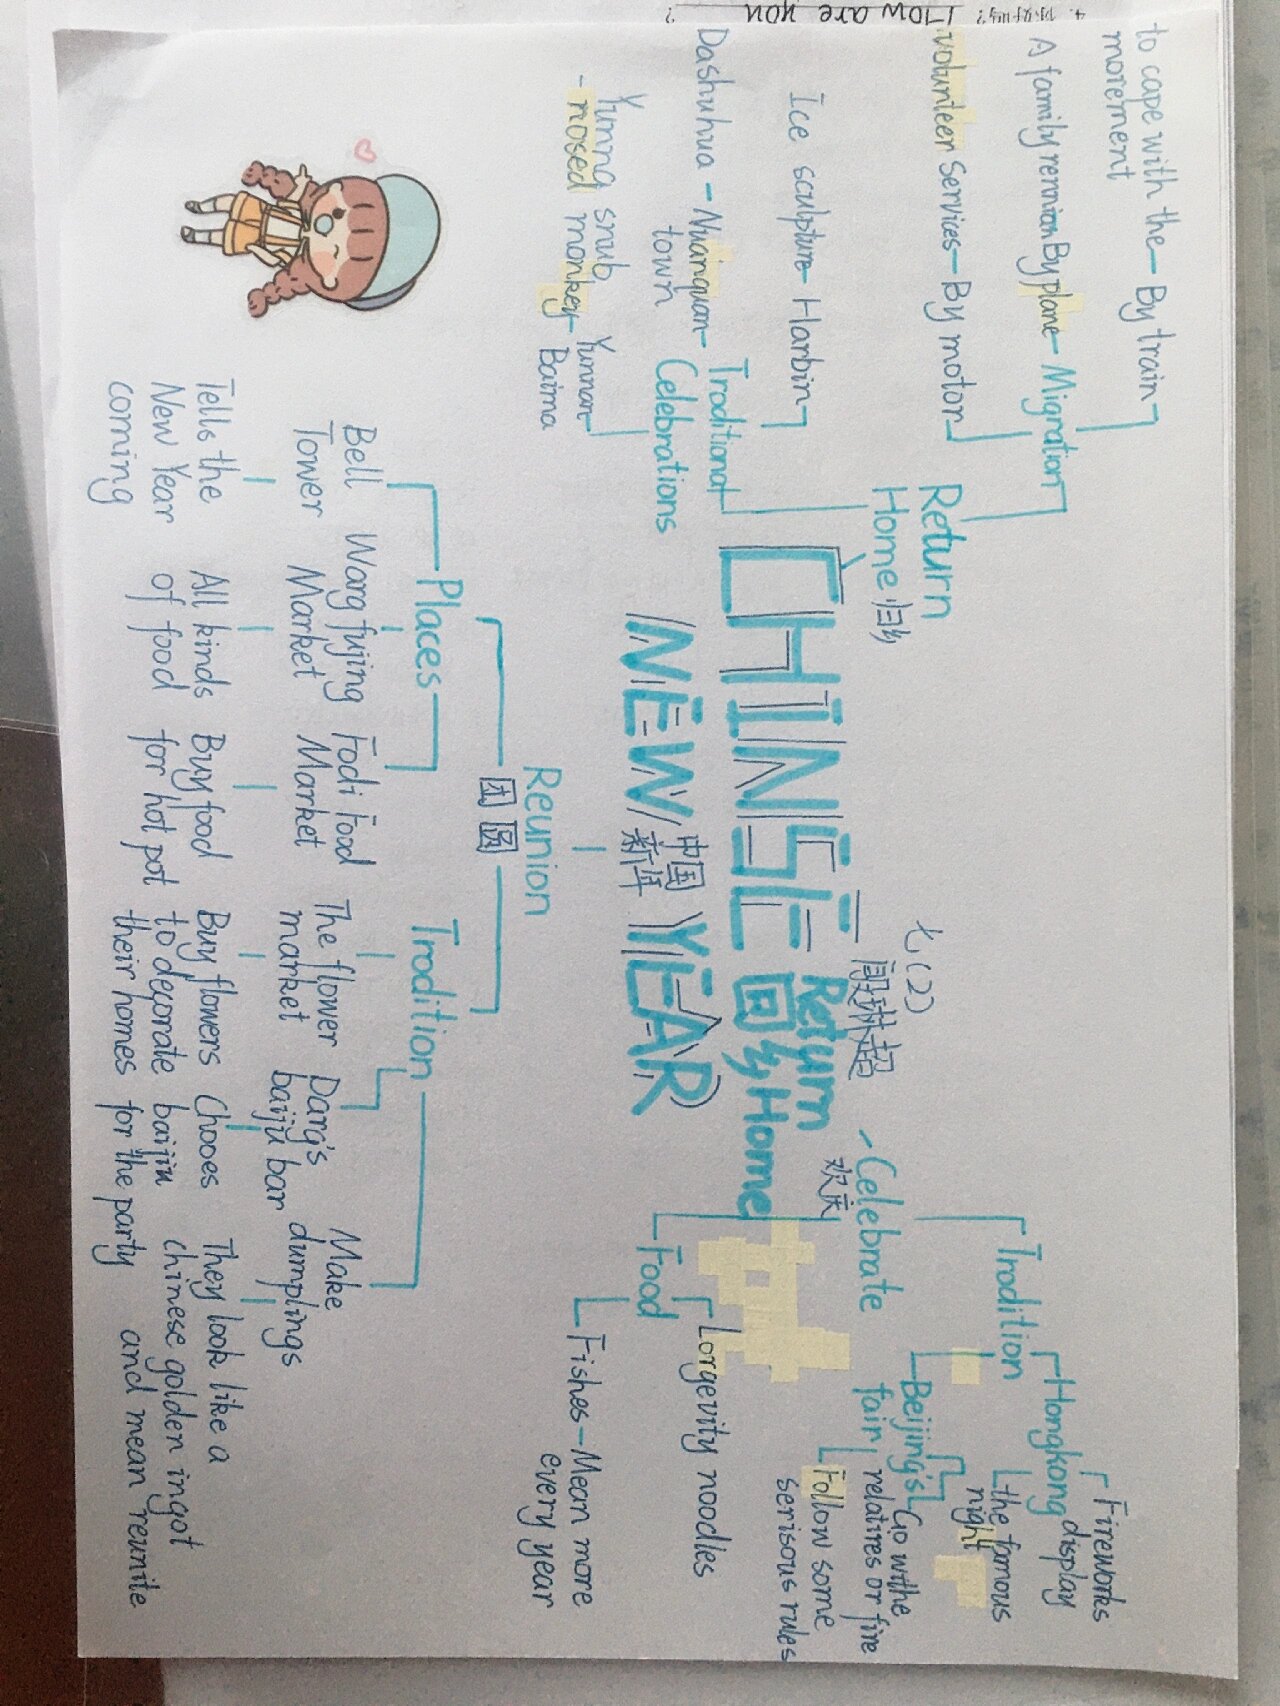 4. 你好吗? How are you?
七(2)
段琳超
CHINSE
NEW YEAR
中国
新年
Return
回乡 Home
Return
Home 归乡
Migration
to cape with the — By train
morement
A family rennion By plane
volunteer services — By motor
Traditional
Celebrations
Ice sculpture — Harbin
Dashuhua — Nuanquan
town
Yunnng snub
-nosed monkey — Yunnan
Baima
Celebrate
欢庆
Trodition
Hongkong
Fireworks
display
the famous
night
Beijing's
fair
Go withe
relatires or fire
Follow some
serisous rules
Food
Lorgevity noodles
Fishes — Mean more
every year
Reunion
团圆
Places
Bell
Tower
Tells the
New Year
coming
Warg fujing
Market
All kinds
of food
Fodi Food
Market
Buy food
for hot pot
Trodition
The flower
market
Buy flowers
to decorate
their homes
Darg's
baiju bar
Chooes
baijiu
for the party
Make
dumplings
They look like a
chinese golden ingot
and mean reunite